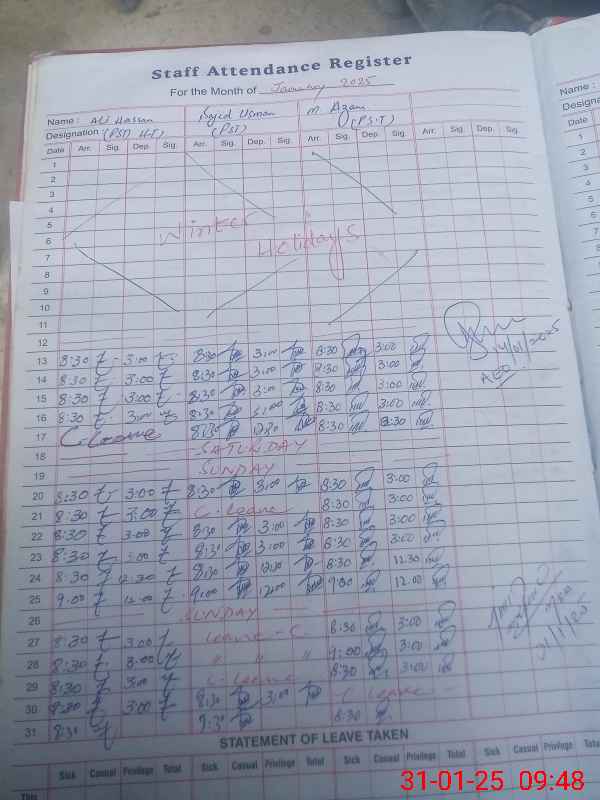 Staff Attendance Register
For the Month of January 2025
Name : Ali Hassan Syed Usman M Azam
Designation (PST H.T) (PST) (P.S.T)
Date Arr. Sig. Dep. Sig. Arr. Sig. Dep. Sig. Arr. Sig. Dep. Sig. Arr. Sig. Dep. Sig.
1
2
3
4
5
6 Winter
7 Holidays
8
9
10
11
12
13 8:30 3:00 8:30 3:00 8:30 3:00
14 8:30 3:00 8:30 3:00 8:30 3:00
15 8:30 3:00 8:30 3:00 8:30 3:00
16 8:30 3:00 8:30 3:00 8:30 3:00
17 C-Leave 8:30 12:30
18 SATURDAY
19 SUNDAY
20 8:30 3:00 8:30 3:00 8:30 3:00
21 8:30 3:00 C-Leave 8:30 3:00
22 8:30 3:00 8:30 3:00 8:30 3:00
23 8:30 3:00 8:30 3:00 8:30 3:00
24 8:30 12:30 8:30 12:30 8:30 12:30
25 9:00 12:00 9:00 12:00 9:00 12:00
26 SUNDAY
27 8:30 3:00 Leave-C 8:30 3:00
28 8:30 3:00 " " " 9:00 3:00
29 8:30 3:00 C-Leave 8:30 3:00
30 8:30 3:00 8:30 3:00 C Leave
31 8:30 8:30
14/01/2025
AEO
31/1/25
STATEMENT OF LEAVE TAKEN
Sick Casual Privilege Total Sick Casual Privilege Total Sick Casual Privilege Total Sick Casual Privilege Total
This
Name :
Designation
Date Arr.
1
2
3
4
5
6
7
8
9
10
11
12
13
14
15
16
17
18
19
20
21
22
23
24
25
26
27
28
29
30
31
31-01-25 09:48